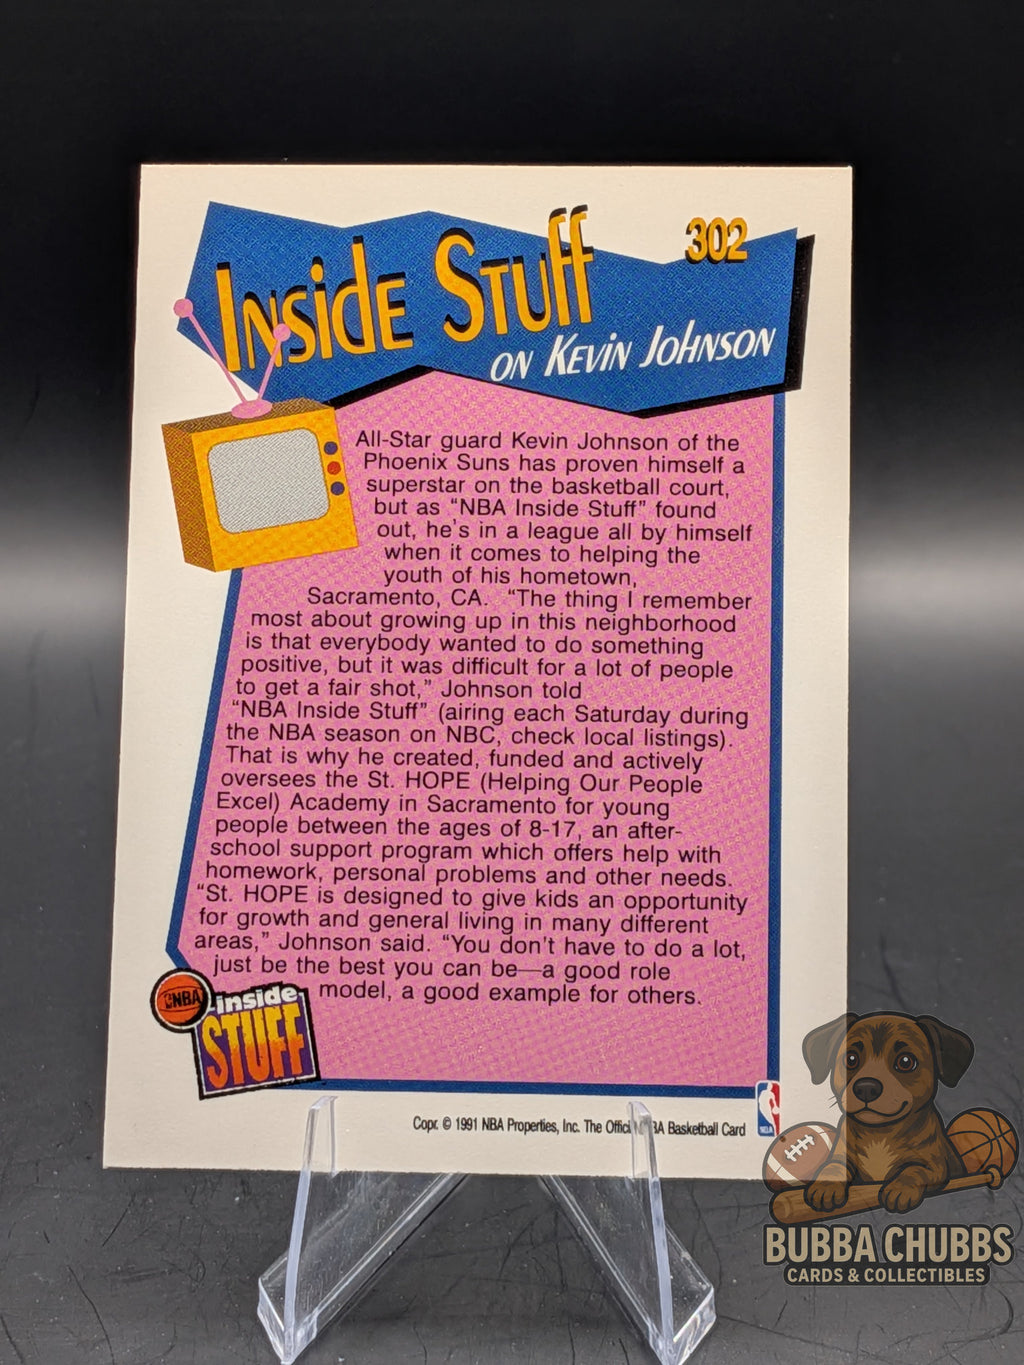 302
Inside Stuff
on Kevin Johnson
All-Star guard Kevin Johnson of the
Phoenix Suns has proven himself a
superstar on the basketball court,
but as “NBA Inside Stuff” found
out, he's in a league all by himself
when it comes to helping the
youth of his hometown,
Sacramento, CA. “The thing I remember
most about growing up in this neighborhood
is that everybody wanted to do something
positive, but it was difficult for a lot of people
to get a fair shot,” Johnson told
“NBA Inside Stuff” (airing each Saturday during
the NBA season on NBC, check local listings).
That is why he created, funded and actively
oversees the St. HOPE (Helping Our People
Excel) Academy in Sacramento for young
people between the ages of 8-17, an after-
school support program which offers help with
homework, personal problems and other needs.
“St. HOPE is designed to give kids an opportunity
for growth and general living in many different
areas,” Johnson said. “You don't have to do a lot,
just be the best you can be—a good role
model, a good example for others.
NBA
inside
STUFF
Copr. © 1991 NBA Properties, Inc. The Official NBA Basketball Card
NBA
BUBBA CHUBBS
CARDS & COLLECTIBLES